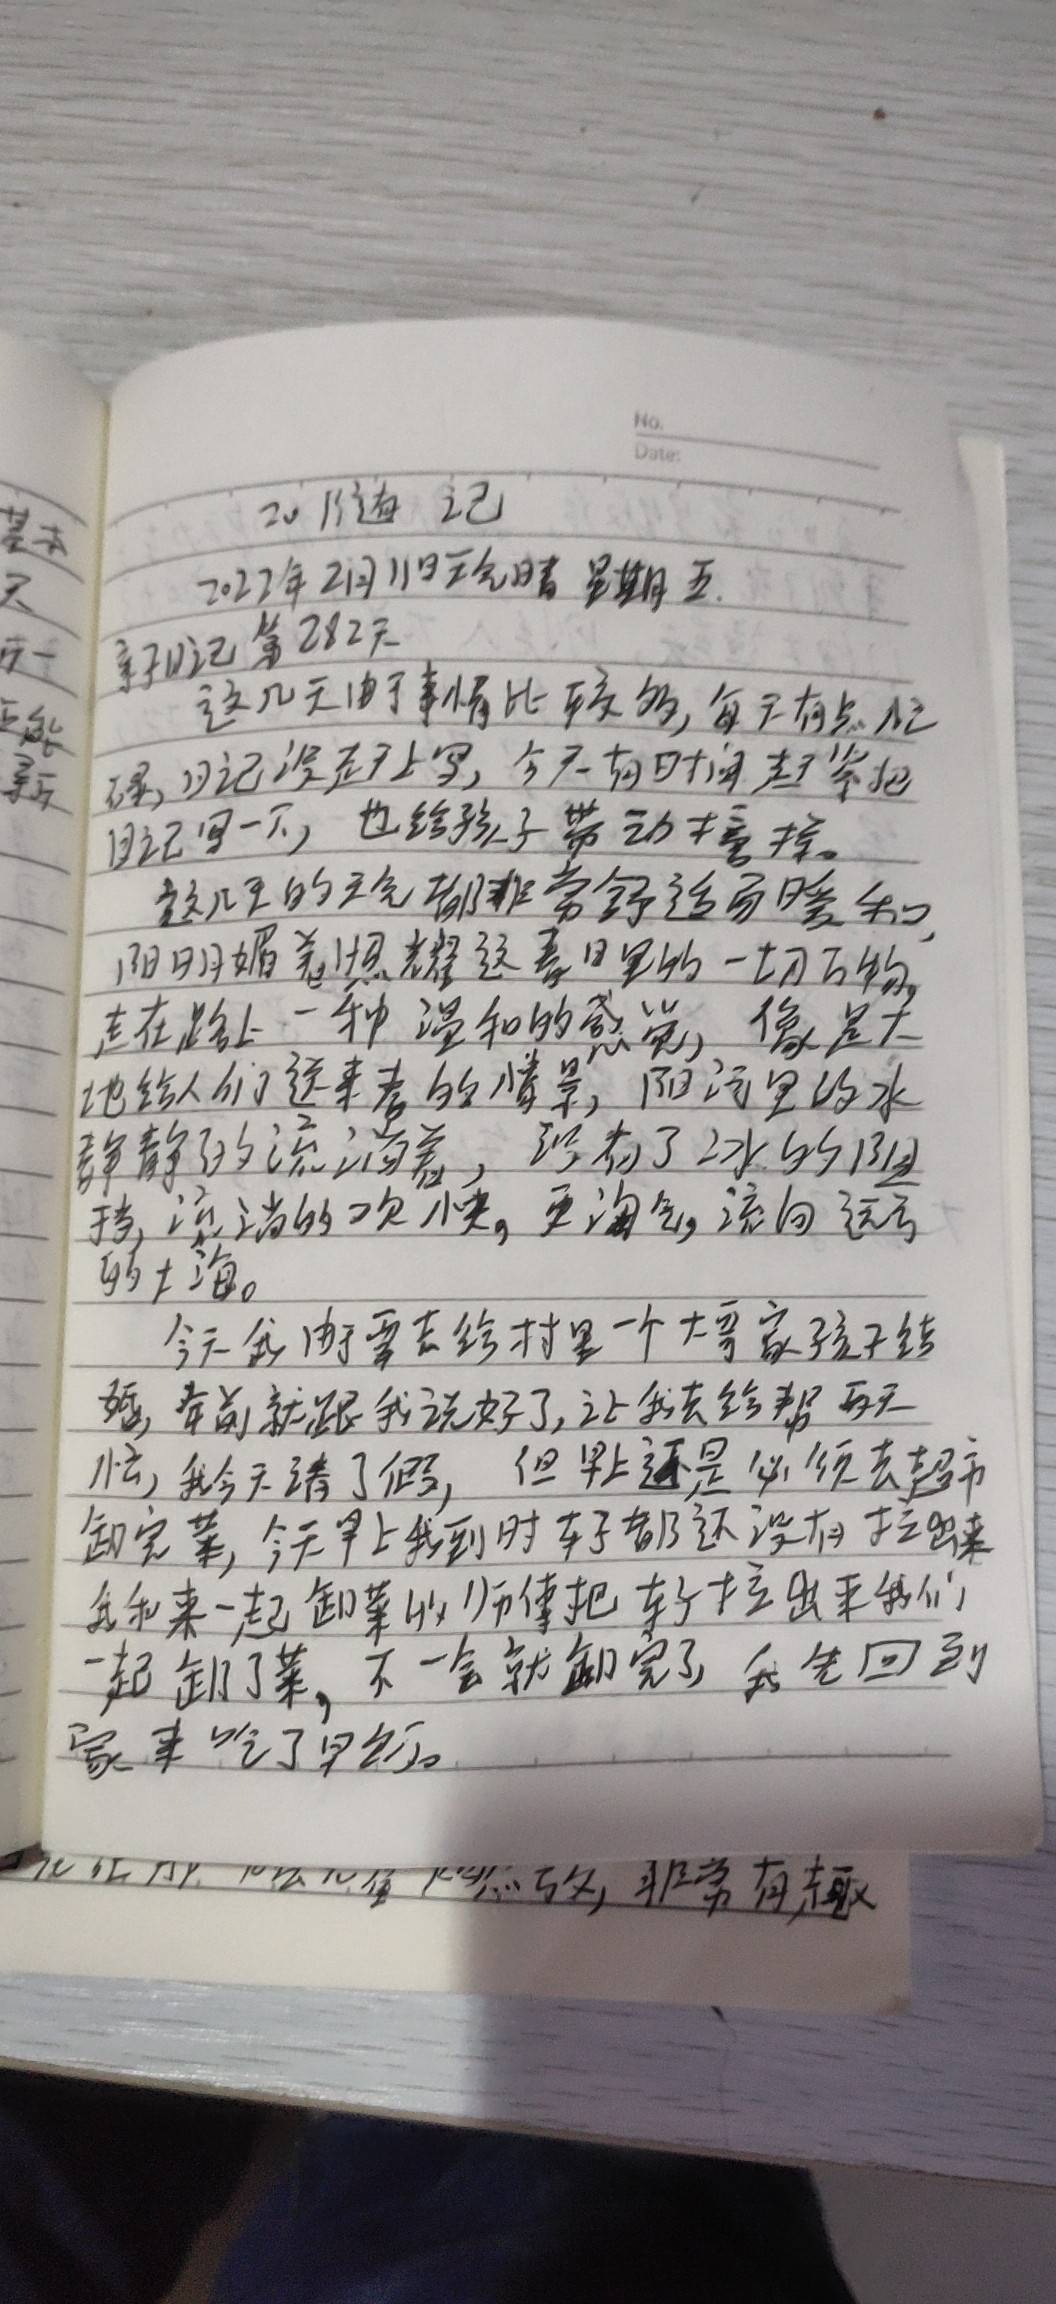 No.
Date:
记
2022年2月11日天气晴 星期五.
亲子日记 第282天
这几天由于事情比较多,每天有点忙
碌,日记没赶上写,今天有时间赶紧把
日记写一下,也给孩子带动
这几天的天气都非常舒适而暖和,
阳明媚着照耀这春日里的一切万物,
走在路上一种温和的感觉,像是大
地给人们送来春的情景,河里的水
静静的流淌着,没有了冰的阻
挡,流淌的欢快,更淘气,流向远方
的大海。
今天我由于要去给村里一个大哥家孩子结
婚,年前就跟我说好了,让我去给帮两天
忙,我今天请了假,但早上还是必须去超市
卸完菜,今天早上我到时车子都还没有拉出来
我和来一起卸菜的师傅把车子拉出来我们
一起卸了菜,不一会就卸完了,我先回到
家来吃了早饭。
非常有趣
基本
天